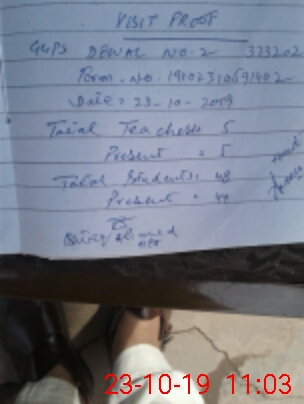 VISIT PROOF
GGPS DEWAL NO. 2 323202
Form. No. 
Date = 23-10-2019
Total Teachers 5
Present = 5
Total Students. 48
Present =
Ahmed
23-10-19 11:03